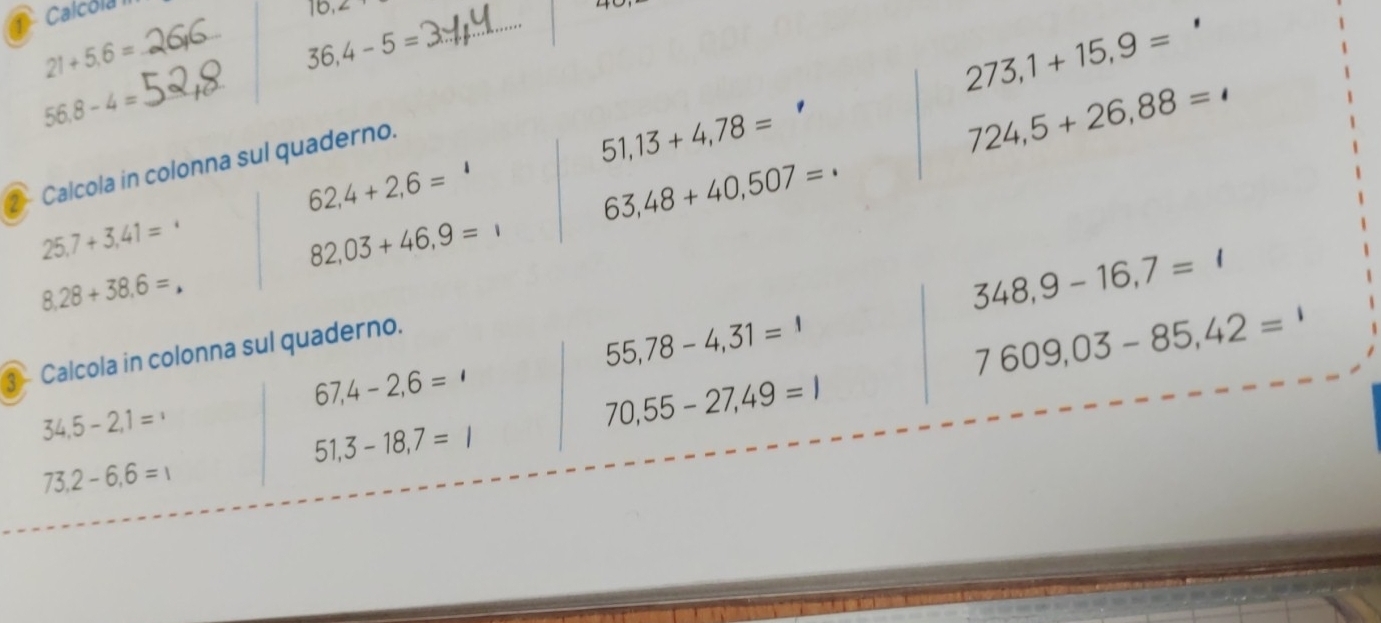 1 Calcola
21 + 5,6 = 26,6
56,8 - 4 = 52,8
16,2
36,4 - 5 = 31,4
2 Calcola in colonna sul quaderno.
25,7 + 3,41 =
8,28 + 38,6 =
62,4 + 2,6 =
82,03 + 46,9 =
51,13 + 4,78 =
63,48 + 40,507 =
273,1 + 15,9 =
724,5 + 26,88 =
3 Calcola in colonna sul quaderno.
34,5 - 2,1 =
73,2 - 6,6 =
67,4 - 2,6 =
51,3 - 18,7 =
55,78 - 4,31 =
70,55 - 27,49 =
348,9 - 16,7 =
7 609,03 - 85,42 =